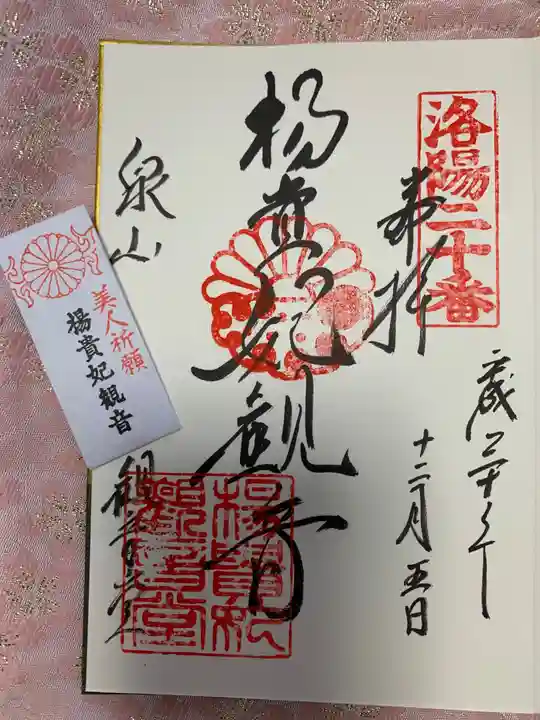 洛陽二十番
奉拝
十二月五日
楊貴妃観音
泉山
観音堂
楊貴妃
観音堂
美人祈願
楊貴妃観音